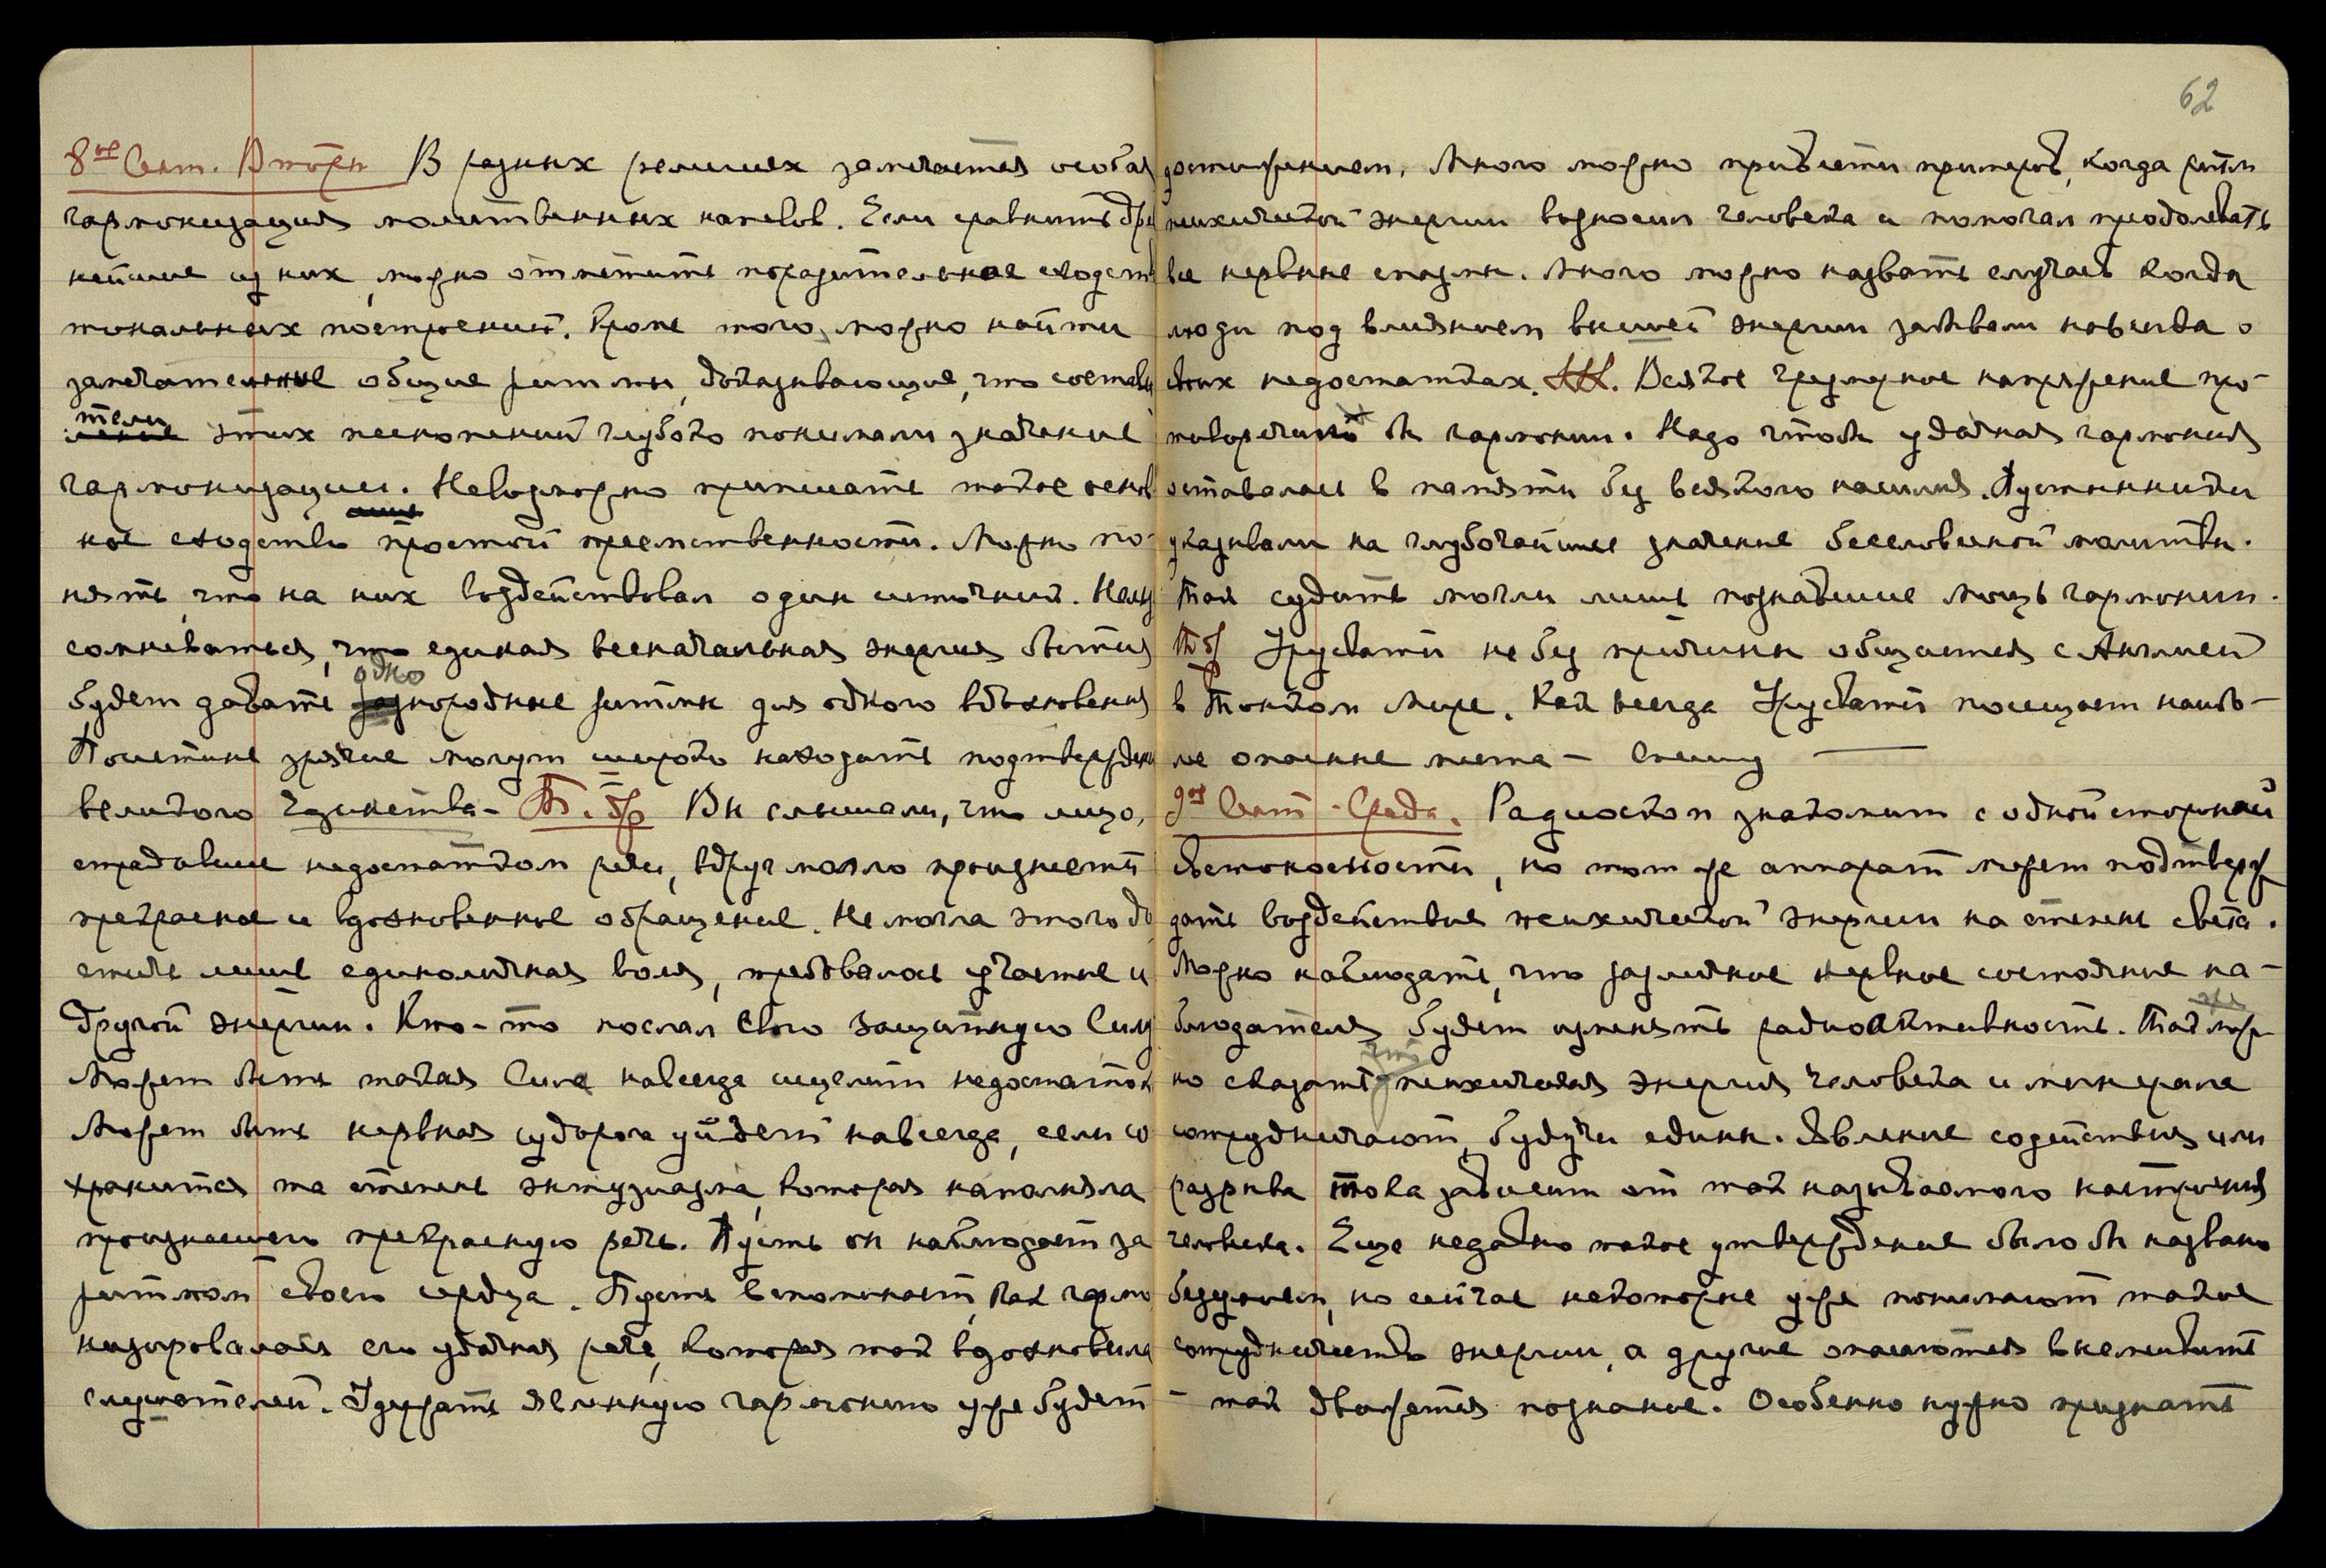 62
8ое Сент. Вторн В разных религиях замечается особая
гармонизация молитвенных напевов. Если сравнить дре
нейшие из них, можно отметить поразительное сходст
тональных построений. Кроме того, можно найти
замечательные общие ритмы, доказывающие, что состави
тели этих песнопений глубоко понимали значение
гармонизации. Невозможно приписать такое основ
ное сходство простой преемственности. Можно по-
нять, что на них воздействовал один источник. Нельз
сомневаться, что единая всеначальная энергия бытия
будет давать однородные ритмы для одного вдохновения
Поистине зрячие могут широко находить подтвержден
великого Единства – Вы слышали, что лицо,
страдавшее недостатком речи, вдруг могло произнести
прекрасное и вдохновенное обращение. Не могла этого до
стичь лишь единоличная воля, требовалось участие и
другой энергии. Кто-то послал Свою Защитную Силу
Может быть такая Сила навсегда исцелит недостаток
Может быть нервная судорога уйдет навсегда, если со
хранится та степень энтузиазма, которая наполняла
произнесшего прекрасную речь. Пусть он наблюдает за
ритмом своего сердца. Пусть вспоминает, как гармо
низировалась его удачная речь, которая так вдохновила
слушателей. Удержать явленную гармонию уже будет
достижением. Много можно привести примеров, когда ритм
психической энергии возносил человека и помогал преодолевать
все нервные спазмы. Много можно назвать случаев когда
люди под влиянием высшей энергии забывали навсегда о
своих недостатках. Всякое чрезмерное напряжение про-
тиворечило бы гармонии. Надо чтобы удачная гармония
оставалась в памяти без всякого насилия. Пустынники
указывали на глубочайшее значение бессловесной молитвы.
Так судить могли лишь познавшие мощь гармонии.
Урусвати не без причины общается с Англией
в Тонком Мире. Как всегда Урусвати посещает наибо-
лее опасные места – Спешу —
9ое Сент. Среда. Радиоскоп знакомит с одной стороной
светоносности, но тот же аппарат может подтверж
дать воздействие психической энергии на степень света.
Можно наблюдать, что различное нервное состояние на-
блюдателя будет изменять радиоактивность. Так мож
но сказать, что психическая энергия человека и минерала
сотрудничают, будучи едины. Явление содействия или
разрыва тока зависит от так называемого настроения
человека. Еще недавно такое утверждение было бы названо
безумием, но сейчас некоторые уже понимают такое
сотрудничество энергии, а другие опасаются высмеивать
– так движется познание. Особенно нужно признать